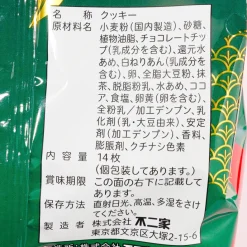 名称 クッキー
原材料名 小麦粉(国内製造)、砂糖、
植物油脂、チョコレートチップ
(乳成分を含む)、還元水
あめ、白ねりあん(乳成分を
含む)、卵、全脂大豆粉、抹
茶、脱脂粉乳、水あめ、ココ
ア、食塩、卵黄(卵を含む)、
全卵粉/加工デンプン、乳
化剤(乳・大豆由来)、安定
剤(加工デンプン)、香料、
膨脹剤、クチナシ色素
内容量 14枚
(個包装してあります。)
賞味期限 この面の右下に記載して
あります。
保存方法 直射日光、高温、多湿をさけ
てください。
製造者 株式会社 不二家
東京都文京区大塚2-15-6